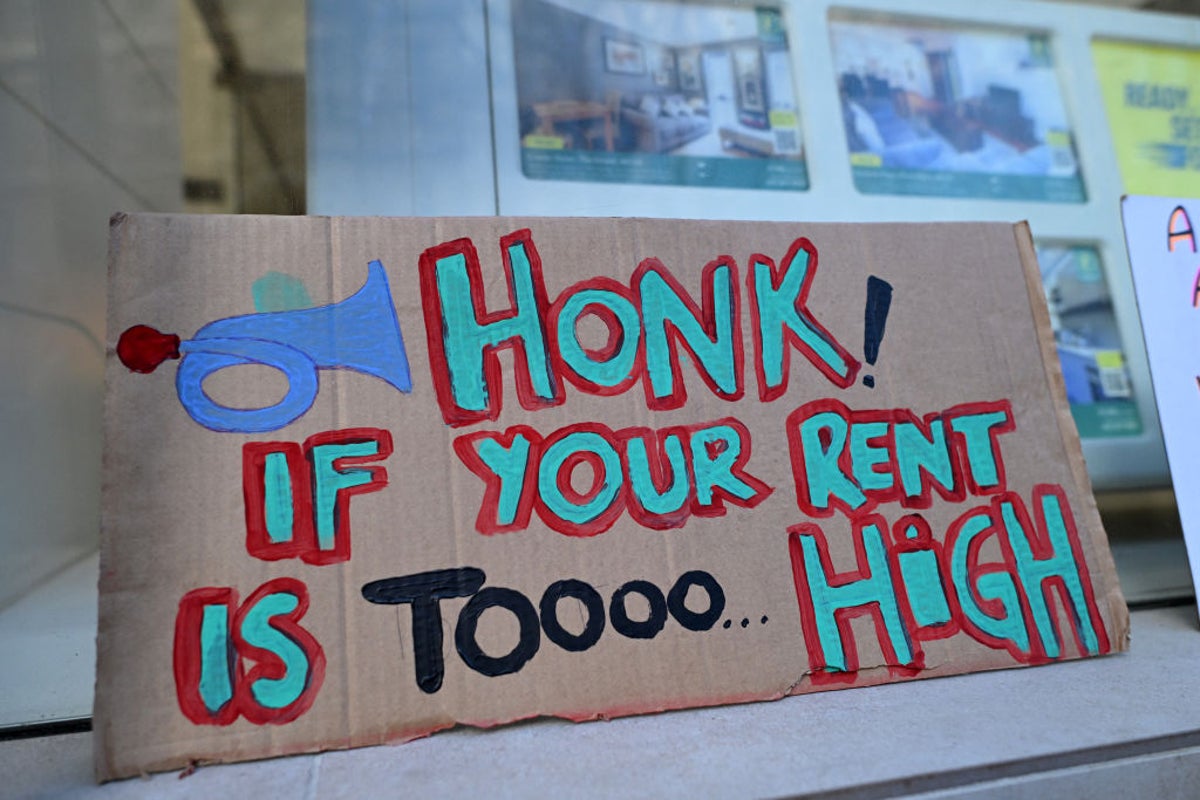 HONK!
IF YOUR RENT
IS TOOOO... HiGH
READY.